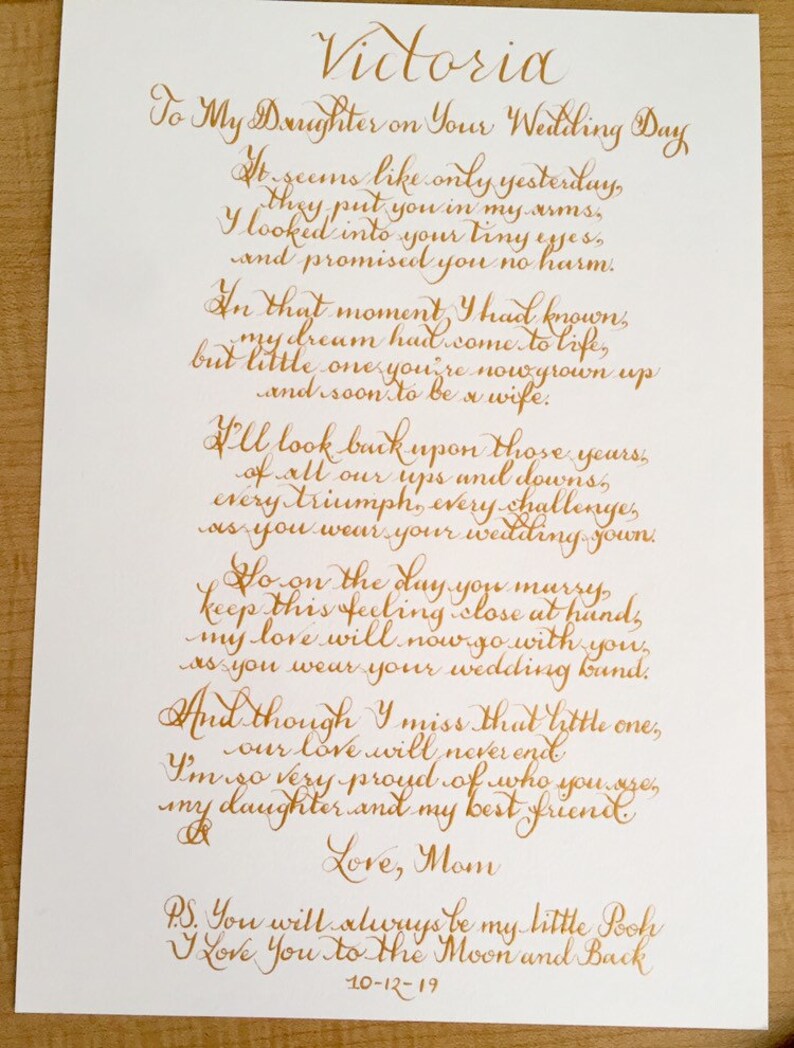 Victoria
To My Daughter on Your Wedding Day
It seems like only yesterday,
they put you in my arms,
I looked into your tiny eyes,
and promised you no harm.
In that moment, I had known,
my dream had come to life,
but little one you're now grown up
and soon to be a wife.
I'll look back upon those years,
of all our ups and downs,
every triumph, every challenge,
as you wear your wedding gown.
So on the day you marry,
keep this feeling close at hand,
my love will now go with you,
as you wear your wedding band.
And though I miss that little one,
our love will never end.
I'm so very proud of who you are,
my daughter and my best friend.
Love, Mom
P.S. You will always be my little Pooh
I Love You to the Moon and Back
10-12-19